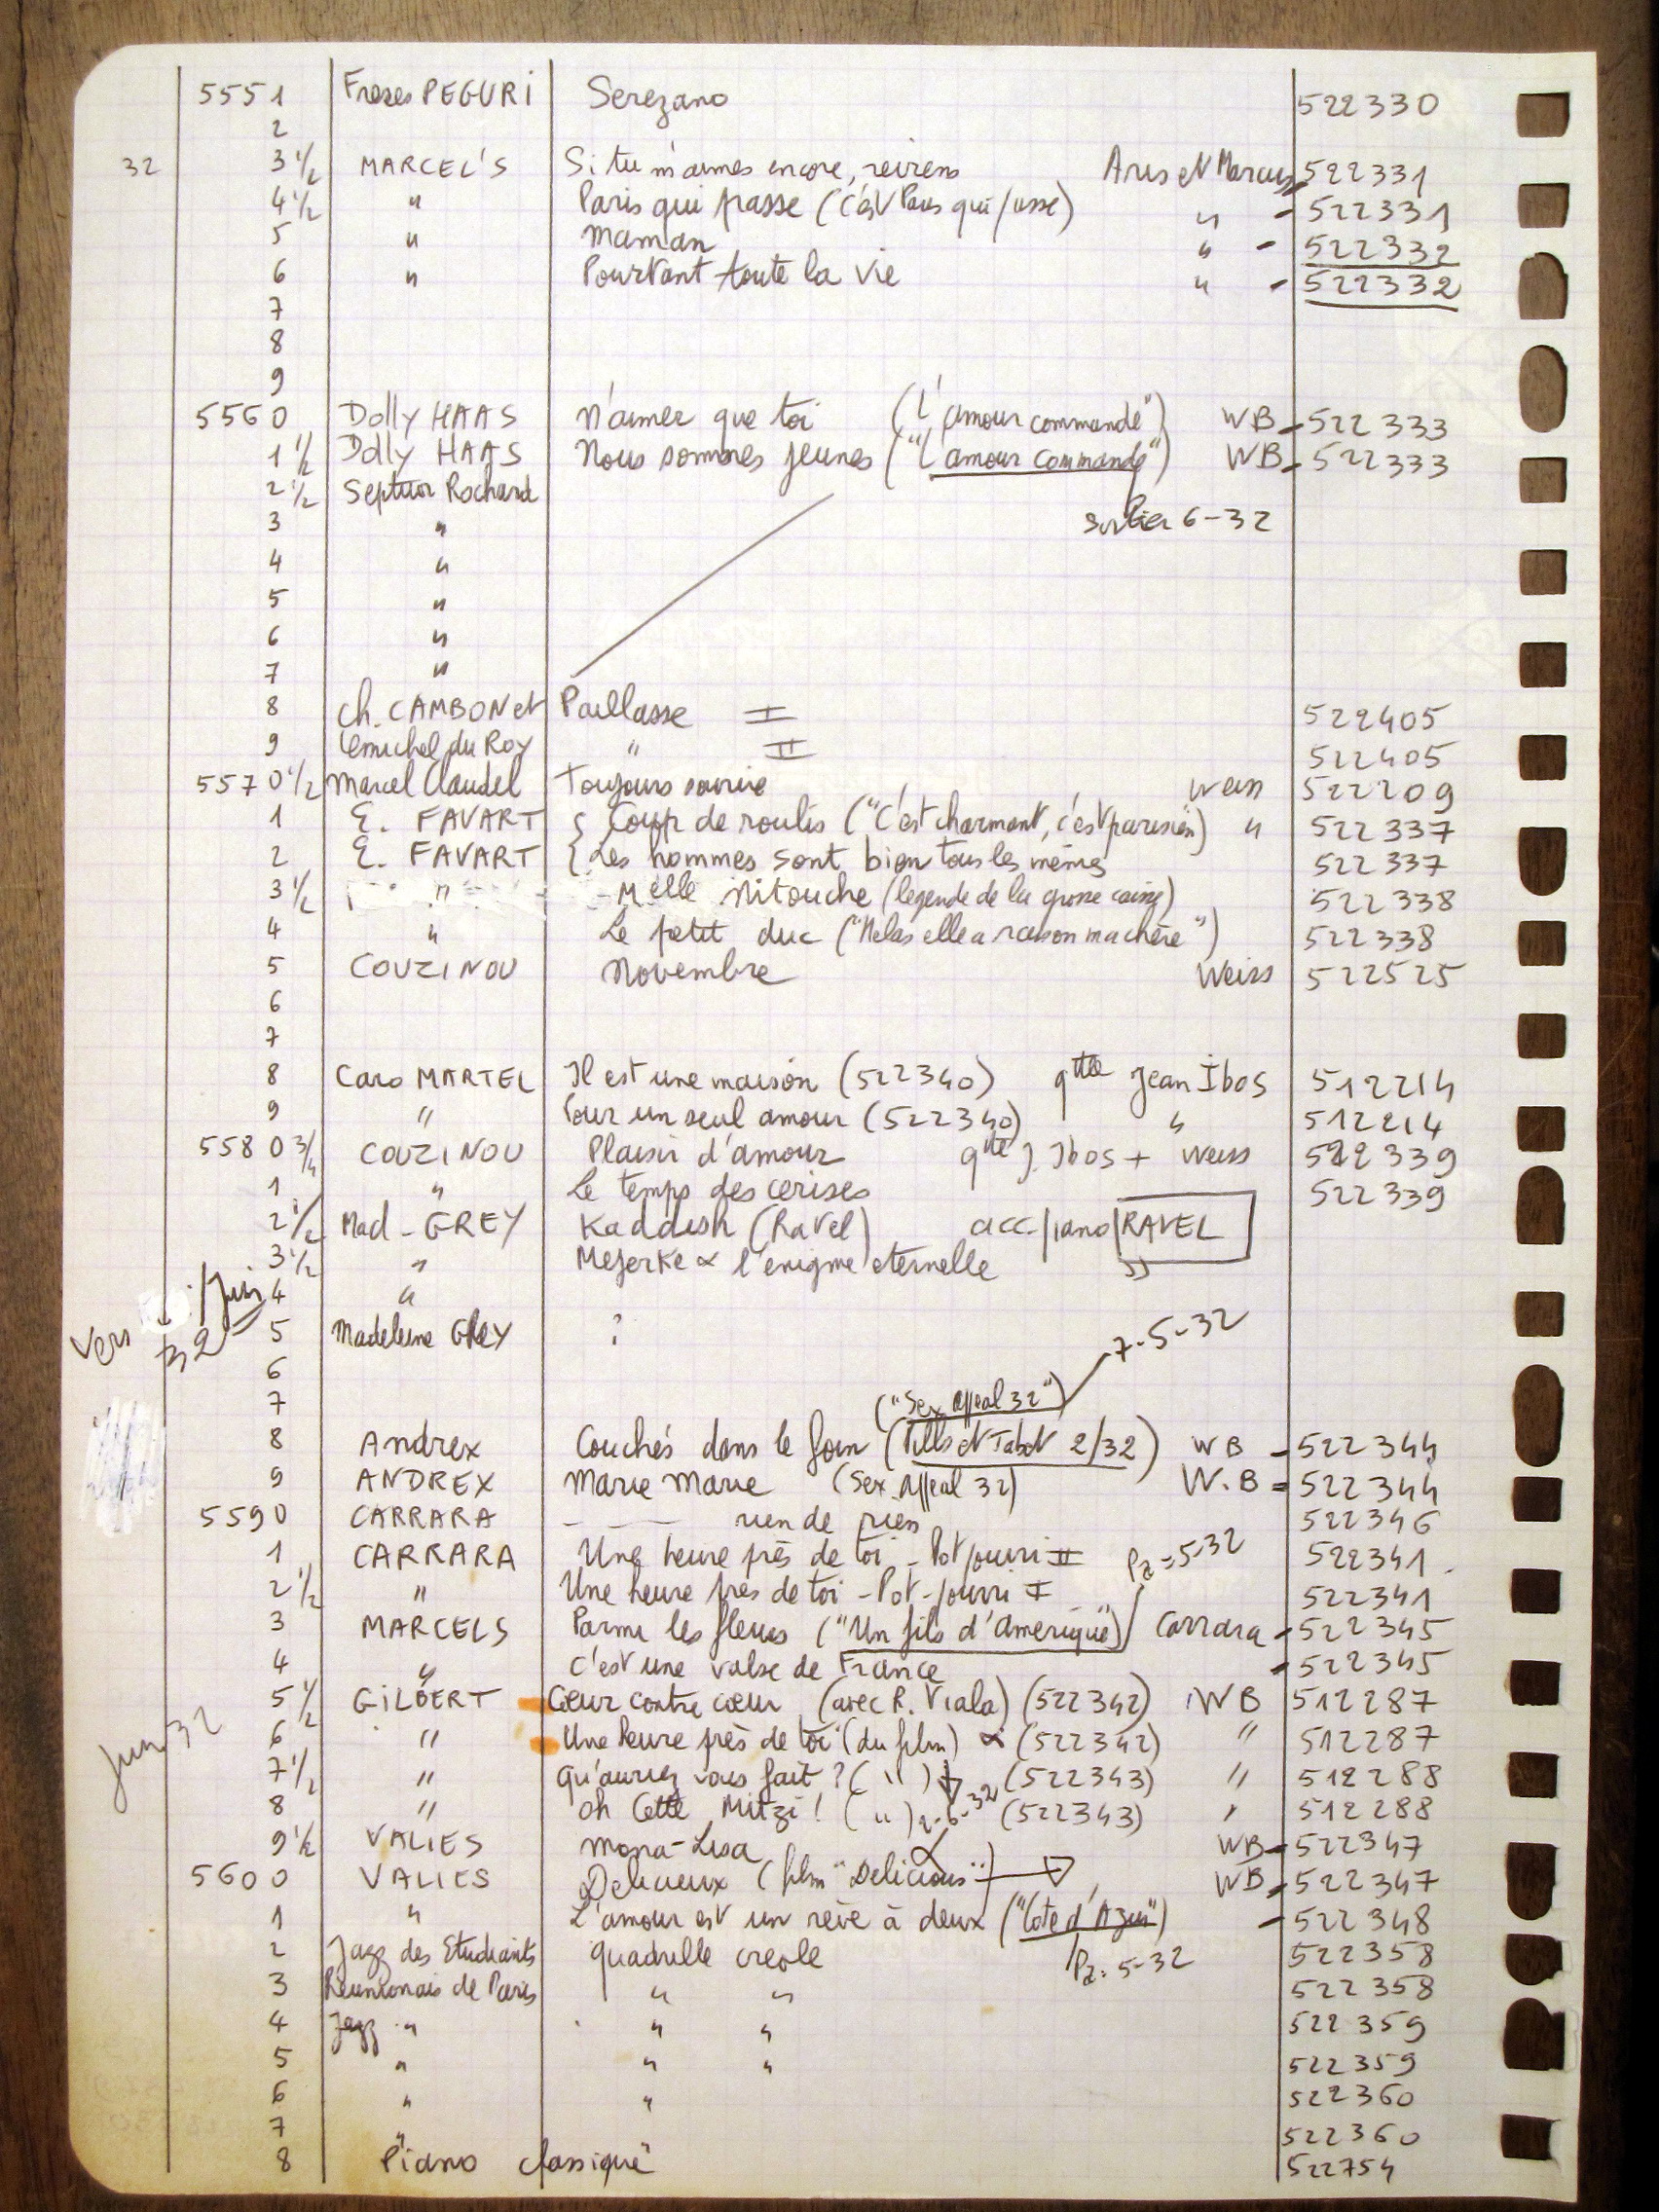 5551 Freres PEGURI Serezano 522330
2
32 3 1/2 MARCEL'S Si tu m'aimes encore, reviens Aris et Marcus 522331
4 1/2 " Paris qui passe (c'est Paris qui passe) " - 522331
5 " Maman " - 522332
6 " Pourtant toute la vie " - 522332
7
8
9
5560 Dolly HAAS N'aimer que toi (L'amour commande") WB - 522333
1 1/2 Dolly HAAS Nous sommes jeunes ("L'amour commande") WB - 522333
2 1/2 Septuor Rochard
3 " Sortie 6-32
4 "
5 "
6 "
7 "
8 Ch. CAMBON et Paillasse I 522405
9 Lemichel du Roy " II 522405
5570 1/2 Marcel Claudel Toujours sourire Weiss 522209
1 E. FAVART { Coup de roulis ("C'est charmant, c'est parisien) " 522337
2 E. FAVART { Les hommes sont bien tous les mêmes 522337
3 1/2 " Melle Nitouche (legende de la grosse caisse) 522338
4 " Le petit duc ("Helas elle a raison ma chère") 522338
5 COUZINOU Novembre Weiss 522525
6
7
8 Caro MARTEL Il est une maison (522340) qtte Jean Ibos 512214
9 " Pour un seul amour (522340) " 512214
5580 3/4 COUZINOU Plaisir d'amour qtte J. Ibos + Weiss 522339
1 " Le temps des cerises 522339
2 1/2 Mad-GREY Kaddish (Ravel) acc piano RAVEL
3 1/2 " Mejerke ∝ l'enigme eternelle "
4 "
Vers Juin 32
5 Madeleine GREY ?
6 7-5-32
7 ("Sex appeal 32")
8 Andrex Couchés dans le foin (Pills et Tabet 2/32) WB - 522344
9 ANDREX Marie Marie (Sex appeal 32) W.B = 522344
5590 CARRARA - — rien de rien 522346
1 CARRARA Une heure près de toi - Pot pourri II Pa = 5-32 522341
2 1/2 " Une heure près de toi - Pot-pourri I 522341
3 MARCELS Parmi les fleurs ("Un fils d'Amerique") Carrara - 522345
4 " C'est une valse de France - 522345
5 1/2 GILBERT Cœur contre cœur (avec R. Viala) (522342) WB 512287
Juin 32 6 " Une heure près de toi (du film) ∝ (522342) " 512287
7 1/2 " Qu'auriez vous fait ? ( " ) (522343) " 512288
8 " Oh Cette Mitzi ! ( " ) 2-6-32 (522343) " 512288
9 1/2 VALIES Mona-Lisa WB - 522347
5600 VALIES Delicieux (film "Delicious") WB - 522347
1 " L'amour est un rêve à deux ("Cote d'Azur") - 522348
2 Jazz des Etudiants quadrille creole Pa: 5-32 522358
3 Reunionais de Paris " " 522358
4 Jazz " " " 522359
5 " " " 522359
6 " " 522360
7 " 522360
8 Piano classique 522754